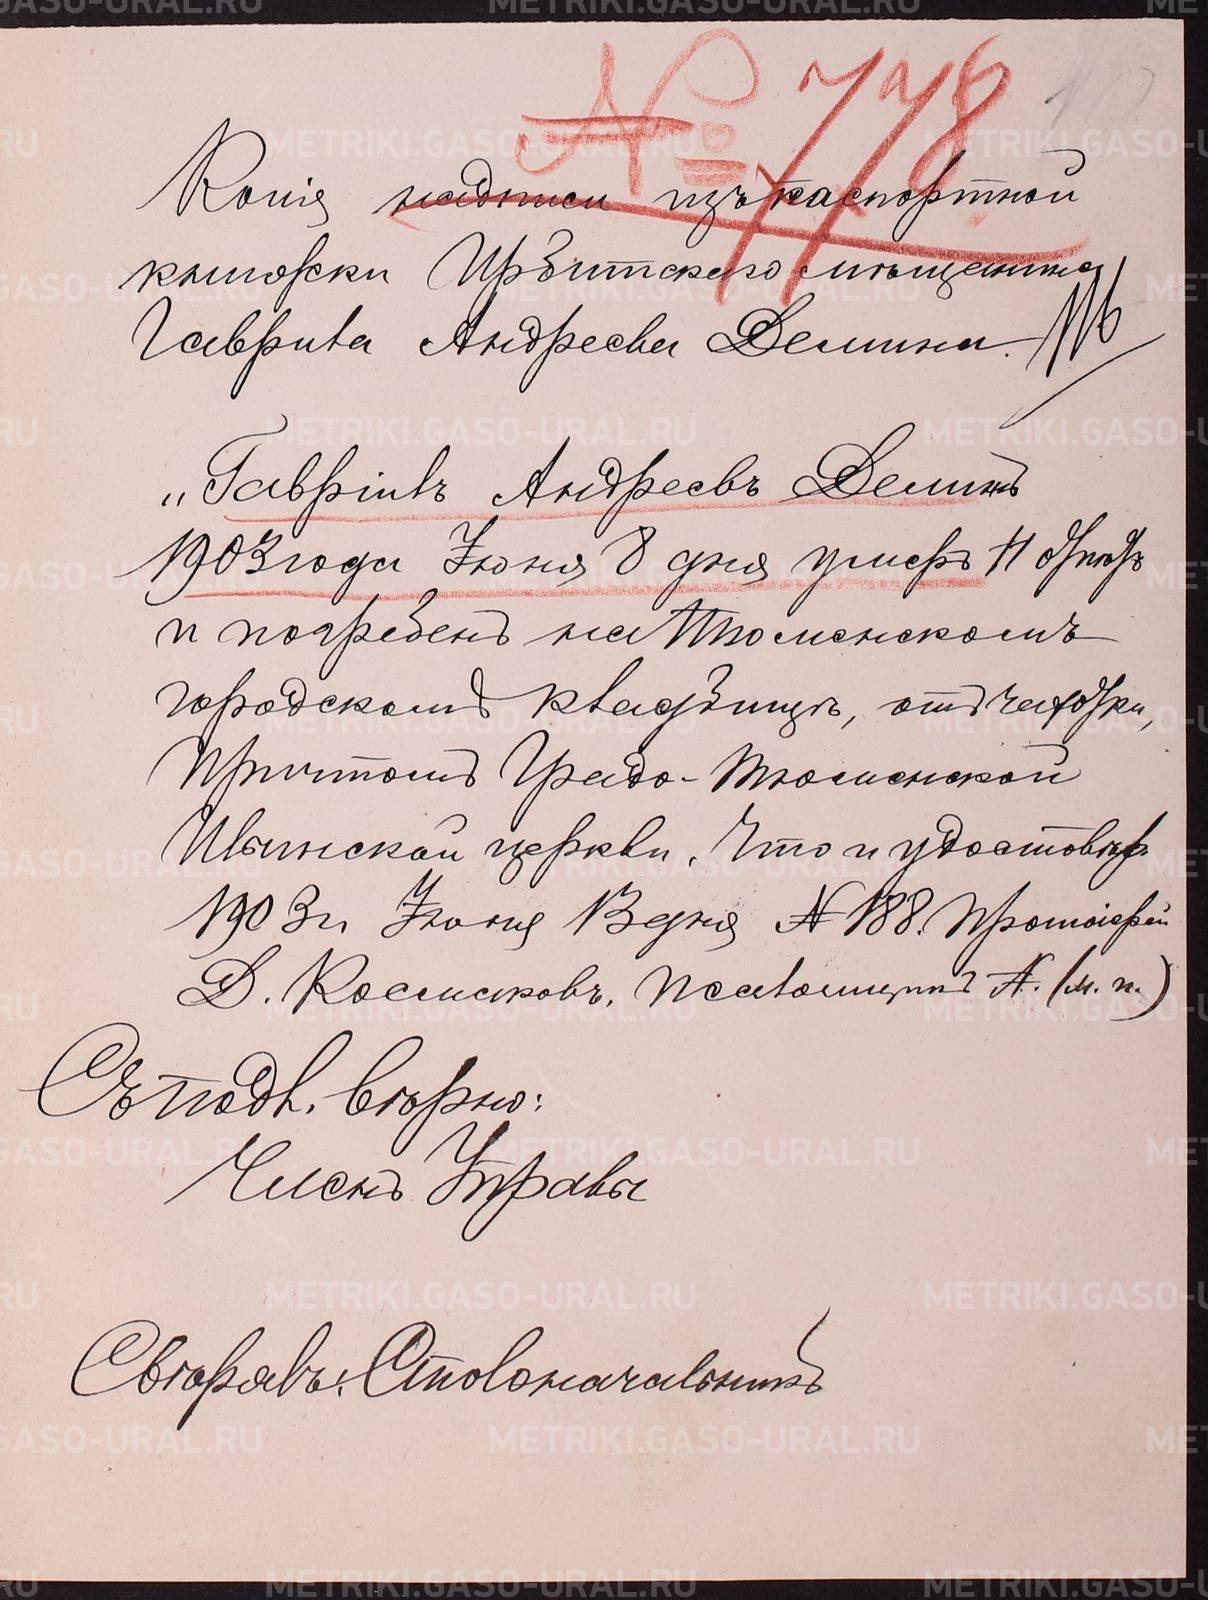 № 778
Копія надписи изъ паспортной
книжки Ирбитскаго мѣщанина
Гавріила Андреева Демина.
„Гавріилъ Андреевъ Деминъ
1903 года Іюня 8 дня умеръ 11
и погребенъ на Тюменскомъ
городскомъ кладбищѣ, отъ чахотки,
Причтомъ Градо-Тюменской
Ильинской церкви. Что и удостовѣр.
1903 г. Іюня 13 дня № 188. Протоіерей
Д. Космаковъ, псаломщикъ А. (м. п.)
Съ подл. вѣрно:
Членъ Управы
Свѣрялъ: Столоначальникъ
METRIKI.GASO-URAL.RU